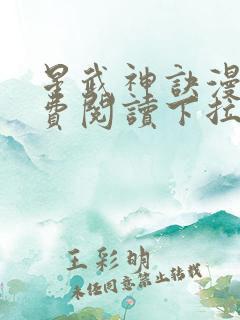 星武神訣漫
費閱讀下拉
王彩明
未经同意禁止转载